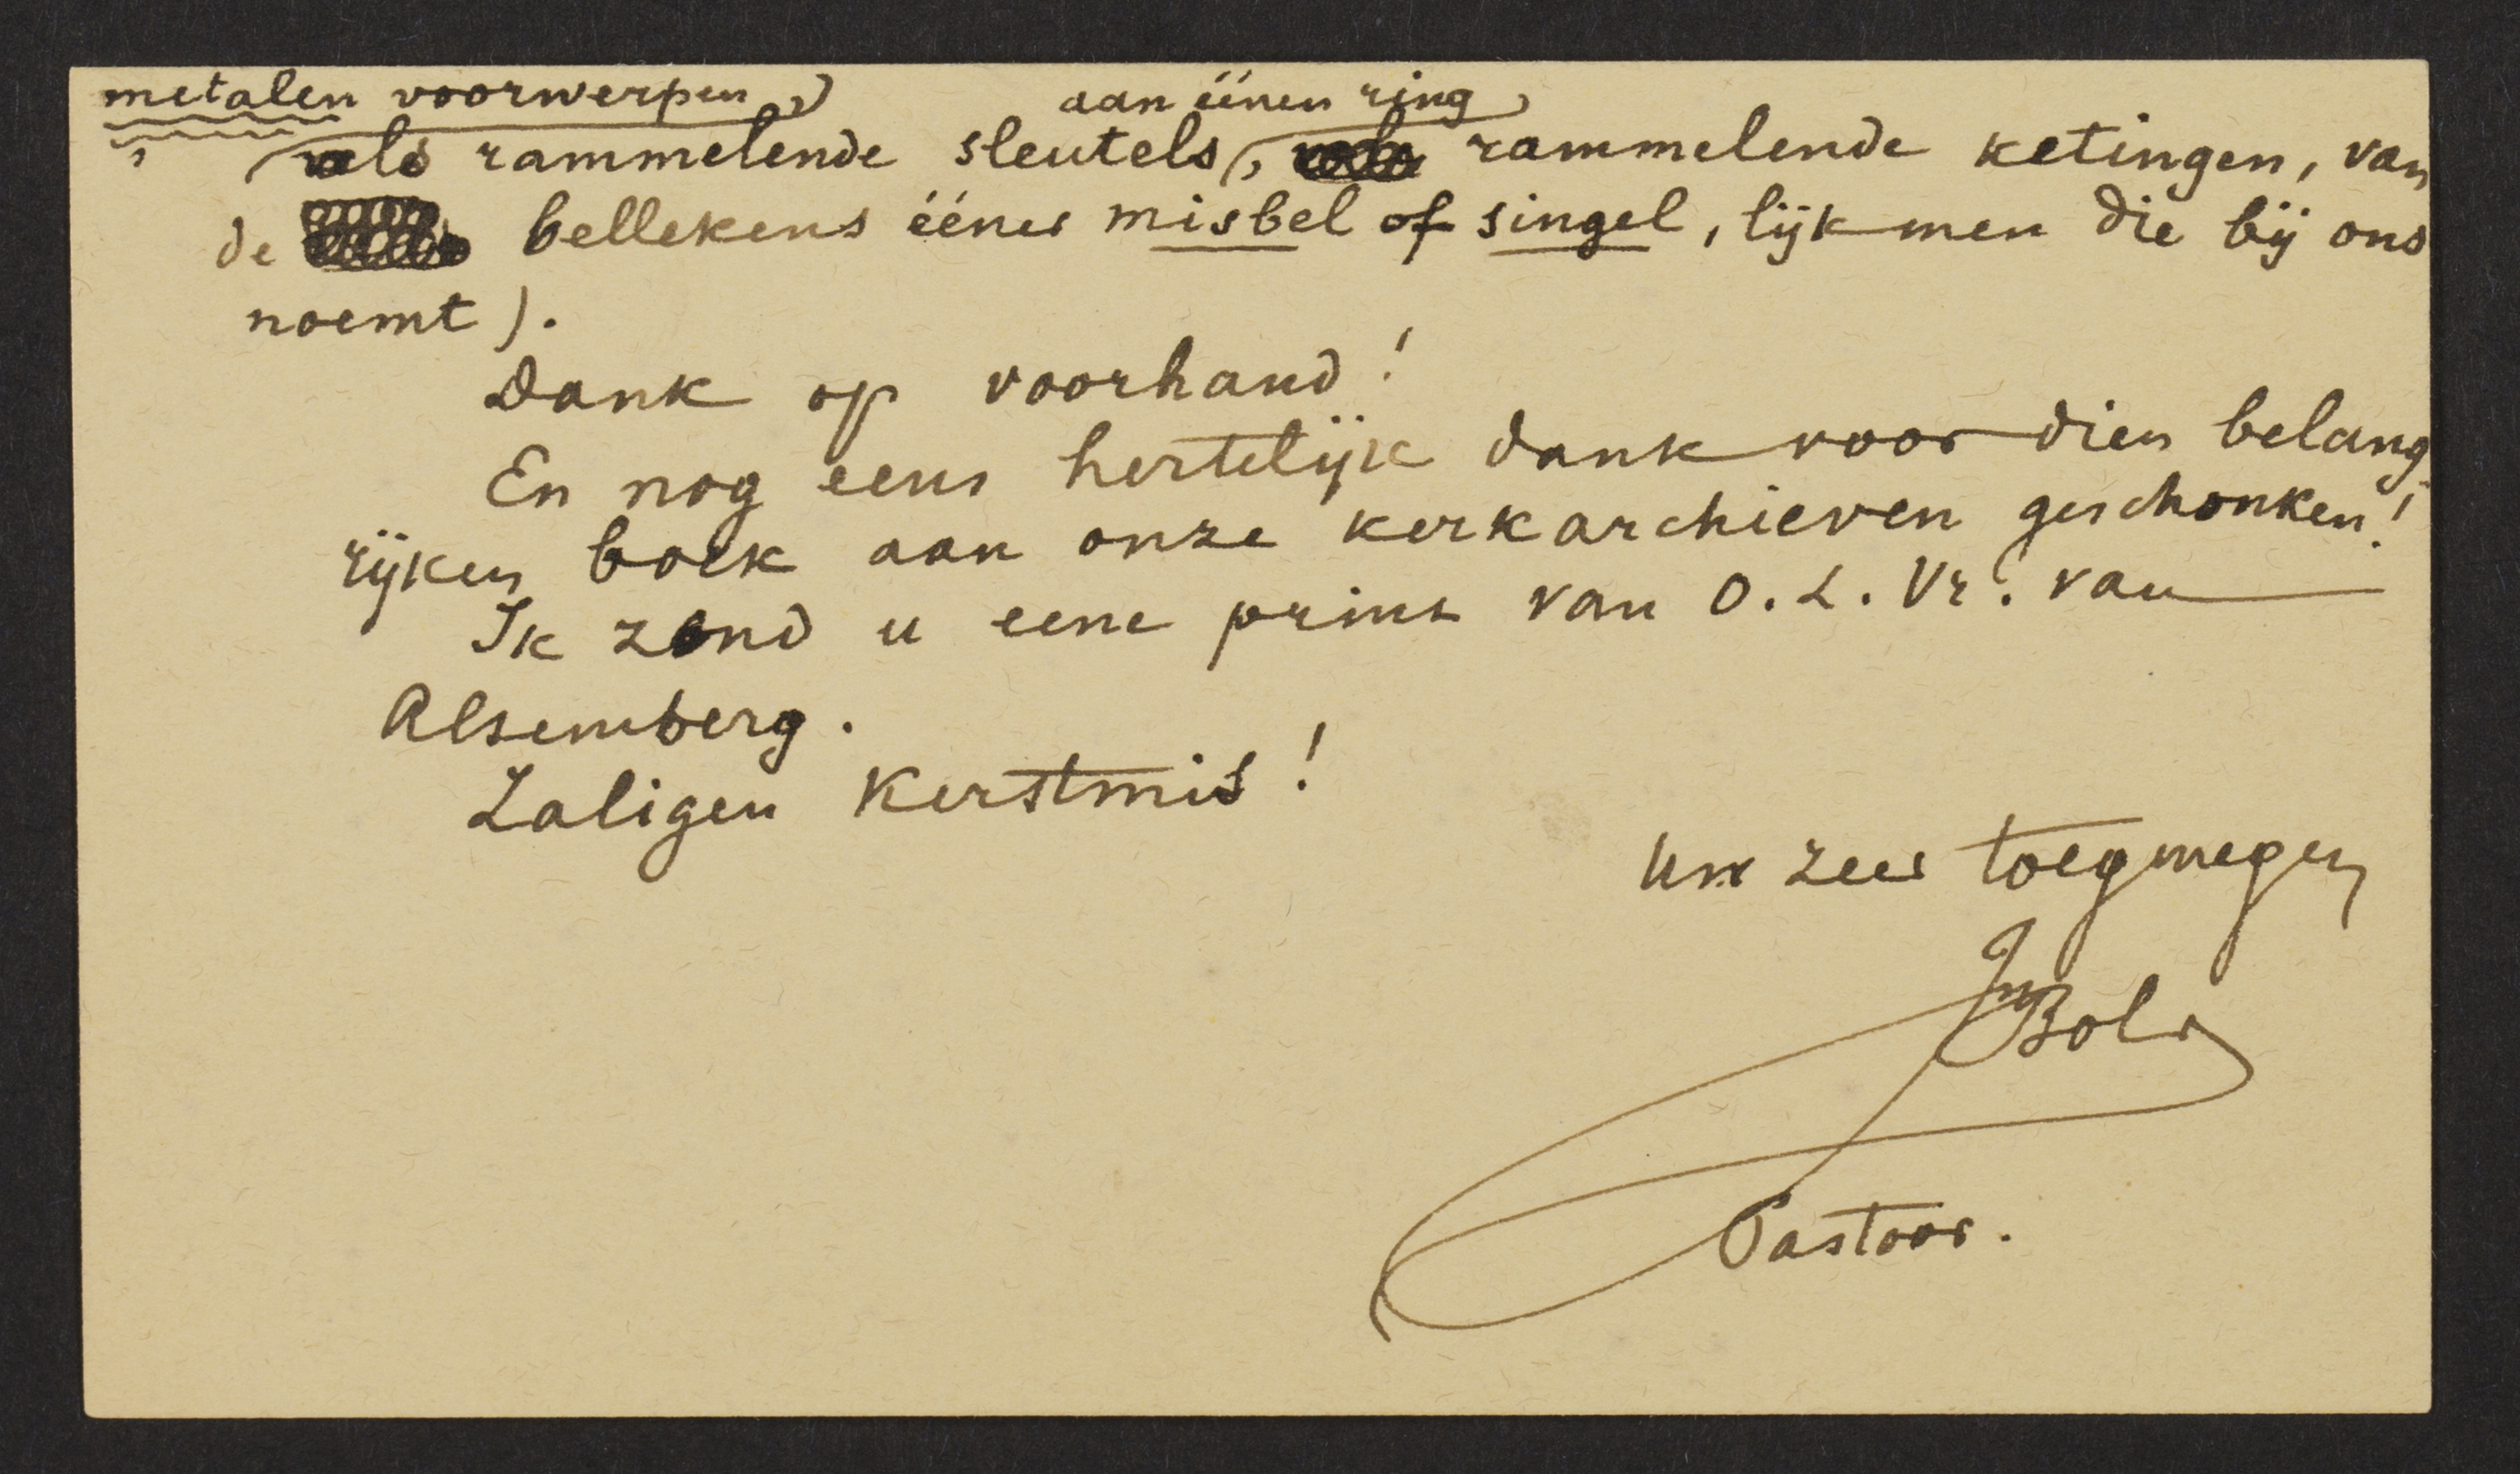 metalen voorwerpen
aan éénen ring
als rammelende sleutels, rammelende ketingen, van
de bellekens ééner misbel of singel, lijk men die bij ons
noemt).
Dank op voorhand!
En nog eens hertelijk dank voor dien belang-
rijken boek aan onze kerkarchieven geschonken!
Ik zend u eene prent van O. L. Vr. van
Alsemberg.
Zaligen Kerstmis!
Uw zeer toegenegen
Bols
Pastoor.